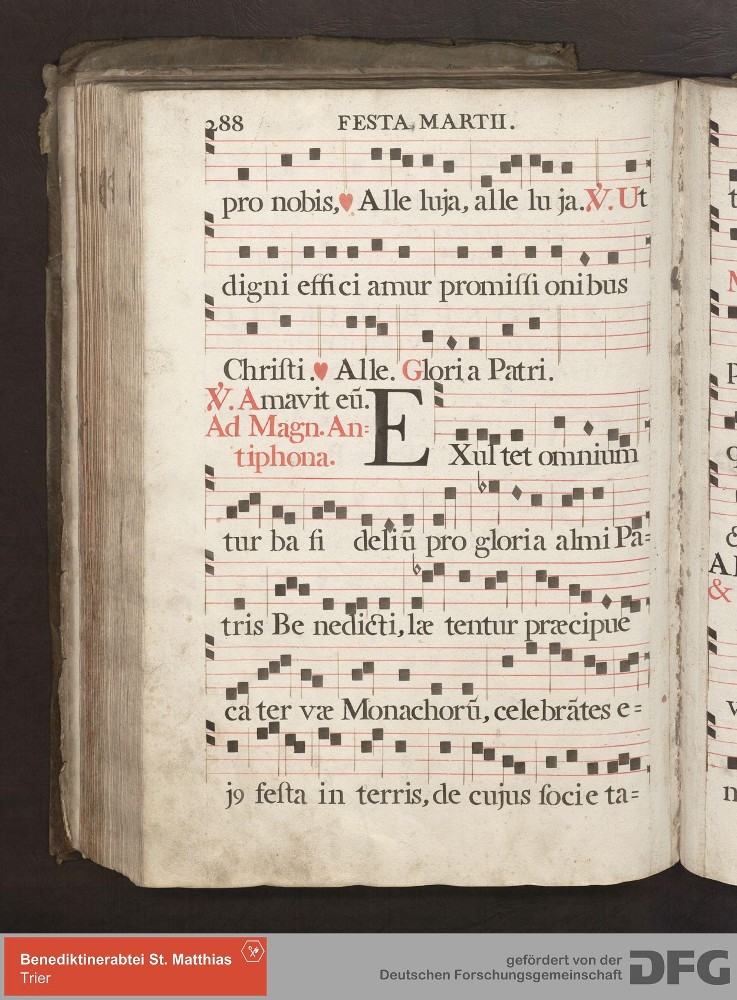 288 FESTA MARTII.
pro nobis,♥ Alle luja, alle lu ja. ℣. Ut
digni effi ci amur promiſſi onibus
Chriſti.♥ Alle. Glori a Patri.
℣. Amavit eū.
Ad Magn. An=
tiphona.
EXul tet omnium
tur ba fi deliū pro gloria almi Pa=
tris Be nedicti, læ tentur præcipue
ca ter væ Monachorū, celebrātes e=
j9 feſta in terris, de cujus ſocie ta=
Benediktinerabtei St. Matthias
Trier
gefördert von der
Deutschen Forschungsgemeinschaft
DFG